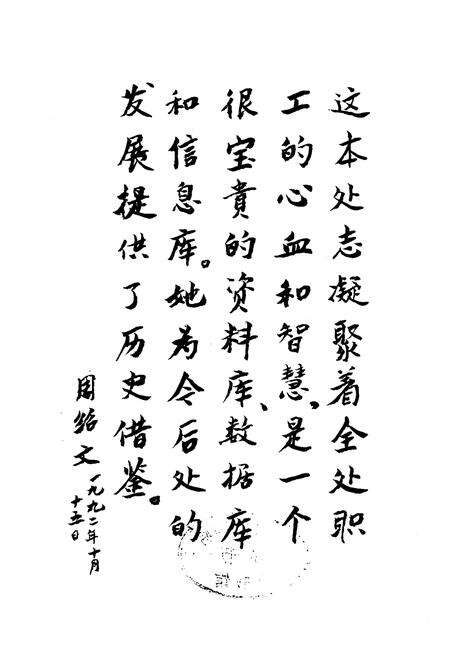 这本处志凝聚着全处职
工的心血和智慧，是一个
很宝貴的资料库、数据库
和信息库。她为今后处的
发展提供了历史借鉴。
周绍文
一九九二年十月
十五日